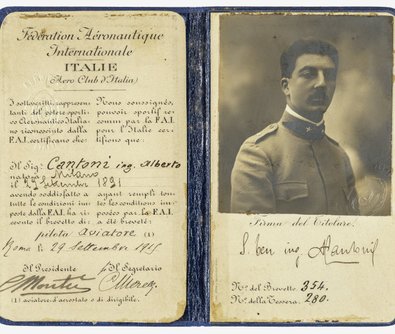 Fédération Aéronautique
Internationale
ITALIE
(Aero Club d'Italia)
I sottoscritti, rappresen
tanti del potere sporti-
vo Aeronautico Italia-
no riconosciuto dalla
F.A.I. certificano che:
Nous soussignés,
pouvoir sportif re-
connu par la F.A.I.
pour l'Italie cer-
tifions que:
Il Sig: Cantoni ing. Alberto
nato a Milano
il 27 1891
avendo soddisfatto a
tutte le condizioni im-
poste dalla F.A.I. ha ri-
cevuto il brevetto di
ayant rempli tou-
tes les conditions im-
posées par la F.A.I.
a été breveté:
pilota aviatore (1)
Roma le 29 Settembre 1915
Il Presidente
Il Segretario
(1) aviatore, d'aerostato o di dirigibile.
Firma del Titolare,
S. ten ing. ACantoni
N.º del Brevetto 354.
N.º della Tessera 280.